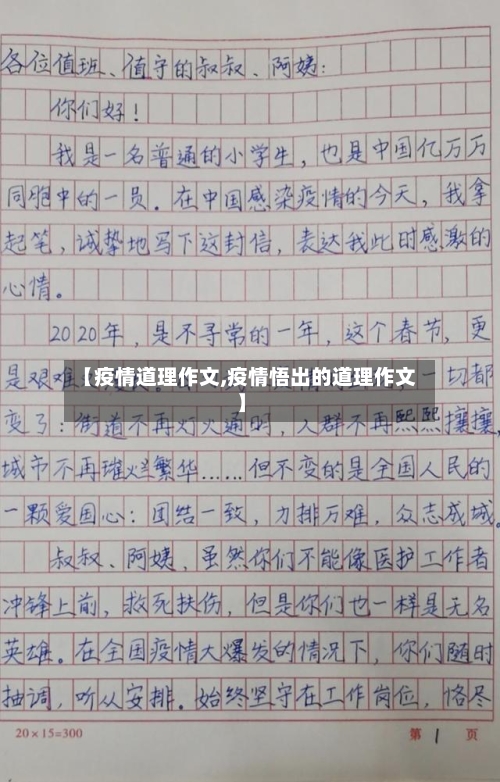 各位值班、值守的叔叔、阿姨：
你们好！
我是一名普通的小学生，也是中国亿万万
同胞中的一员。在中国感染疫情的今天，我拿
起笔，诚挚地写下这封信，表达我此时感激的
心情。
2020年，是不寻常的一年，这个春节，更
是艰难 一切都
【疫情道理作文,疫情悟出的道理作文
】
变了：街道不再灯火通明，人群不再熙熙攘攘，
城市不再璀灿繁华……但不变的是全国人民的
一颗爱国心：团结一致，力排万难，众志成城。
叔叔、阿姨，虽然你们不能像医护工作者
冲锋上前，救死扶伤，但是你们也一样是无名
英雄。在全国疫情大爆发的情况下，你们随时
抽调，听从安排。始终坚守在工作岗位，恪尽
20×15=300 第 1 页